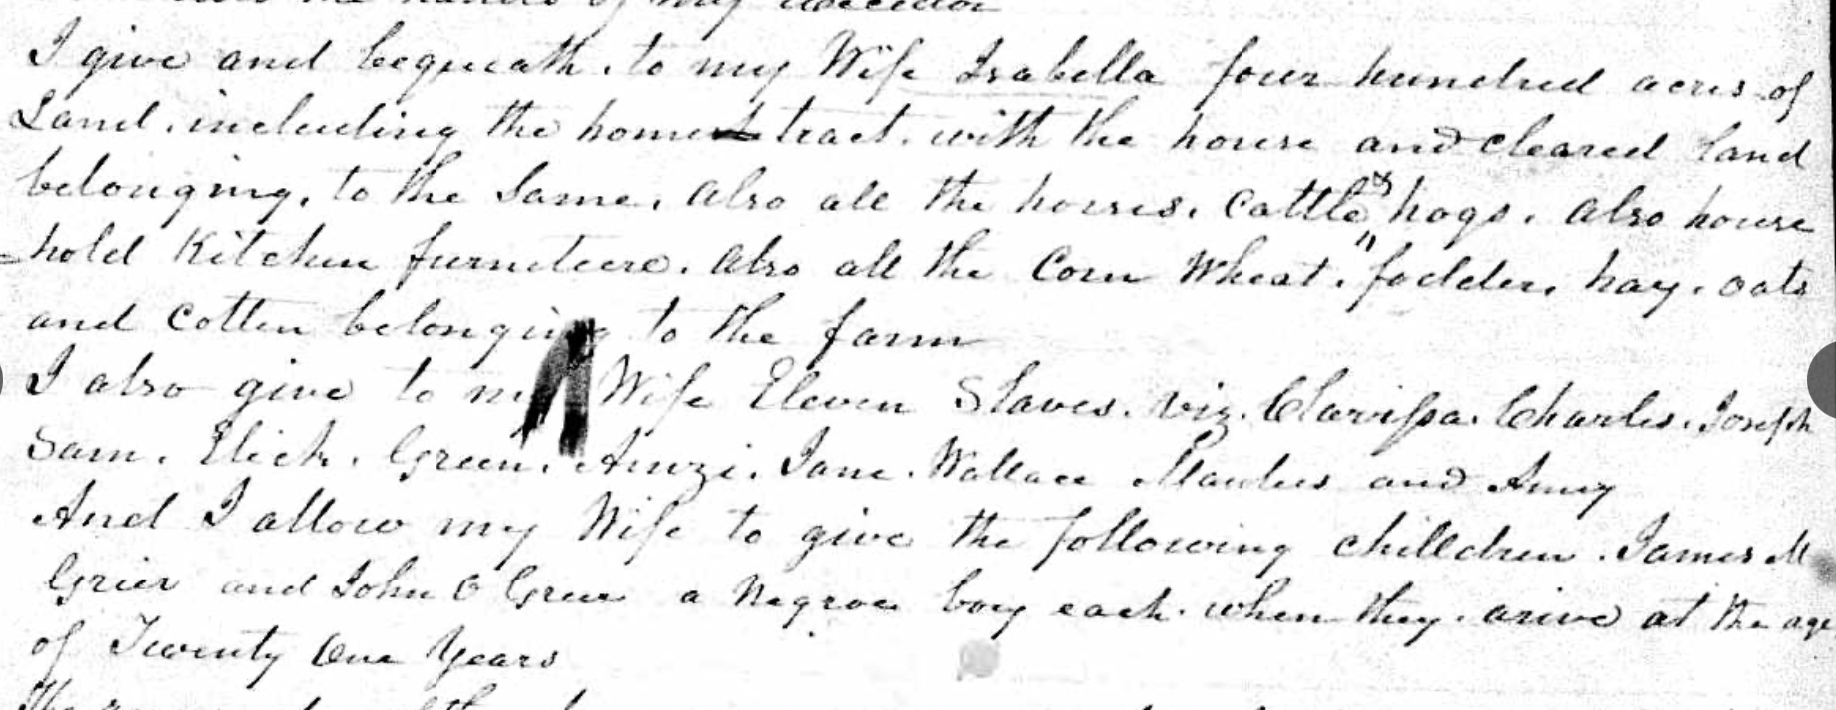 the hands of my
I give and bequeath. to my Wife Isabella four hundred acres of
Land. including the home tract. with the house and cleared land
belonging. to the Same. also all the horses. Cattle & hogs. also house
=hold Kitchen furniture. also all the Corn Wheat. fodder. hay. oats
and Cotten belonging to the farm
I also give to my Wife Eleven Slaves. viz. Clarissa. Charles. Joseph
Sam. Elick. Green. Amzi. Jane. Wallace and Amy
And I allow my Wife to give the following chilldren. James M
Grier and John O Grier a Negroe boy each. when they. arive at the age
of Twenty One Years